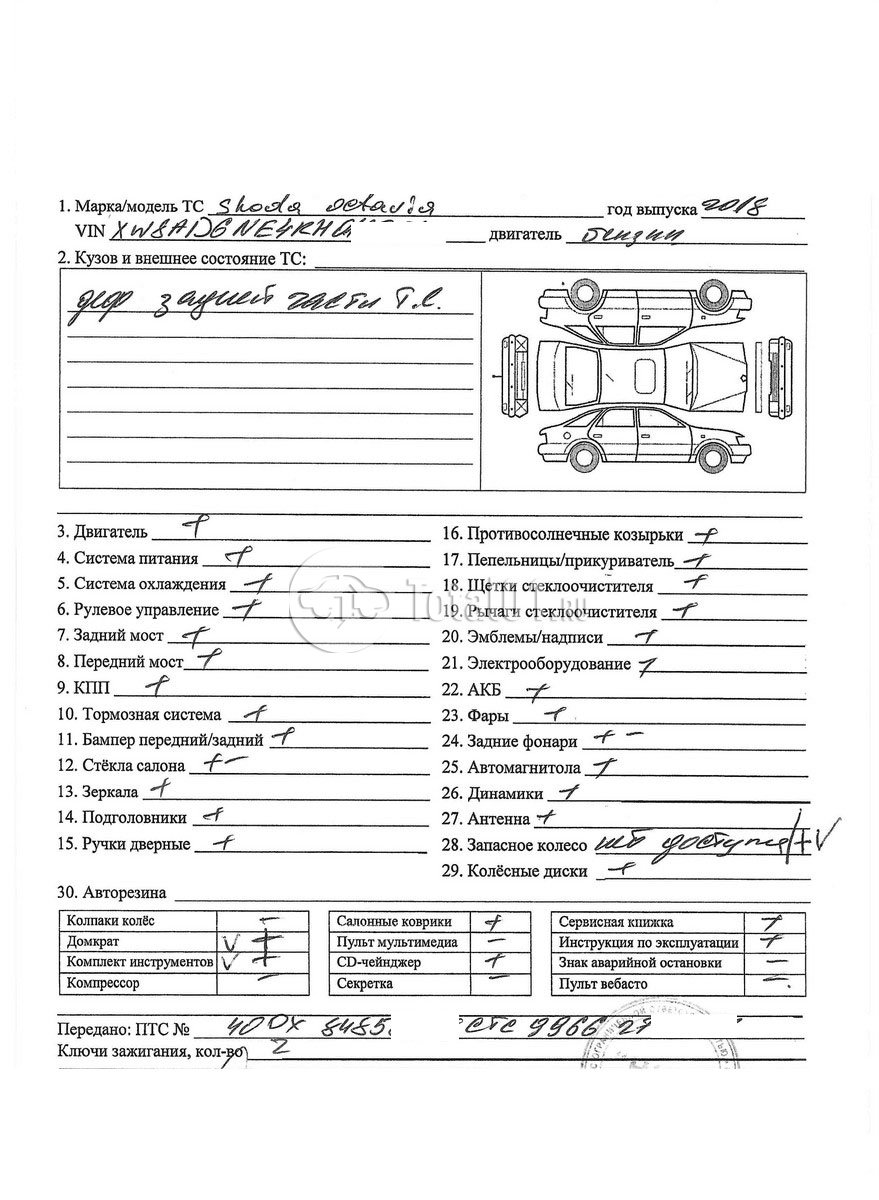 1. Марка/модель ТС Skoda octavia год выпуска 2018
VIN XW8AD6NE4KH двигатель бензин
2. Кузов и внешнее состояние ТС:
деф задней части Т.С.
3. Двигатель +
4. Система питания +
5. Система охлаждения +
6. Рулевое управление +
7. Задний мост +
8. Передний мост +
9. КПП +
10. Тормозная система +
11. Бампер передний/задний +
12. Стёкла салона + –
13. Зеркала +
14. Подголовники +
15. Ручки дверные +
16. Противосолнечные козырьки +
17. Пепельницы/прикуриватель +
18. Щетки стеклоочистителя +
19. Рычаги стеклоочистителя +
20. Эмблемы/надписи +
21. Электрооборудование +
22. АКБ +
23. Фары +
24. Задние фонари + –
25. Автомагнитола +
26. Динамики +
27. Антенна +
28. Запасное колесо доступа/+V
29. Колёсные диски +
30. Авторезина
Колпаки колёс –
Домкрат V +
Комплект инструментов V +
Компрессор –
Салонные коврики +
Пульт мультимедиа –
CD-чейнджер +
Секретка –
Сервисная книжка +
Инструкция по эксплуатации +
Знак аварийной остановки –
Пульт вебасто –
Передано: ПТС № 40 ОХ 8485 СТС 9966 27
Ключи зажигания, кол-во 2
Total01.RU